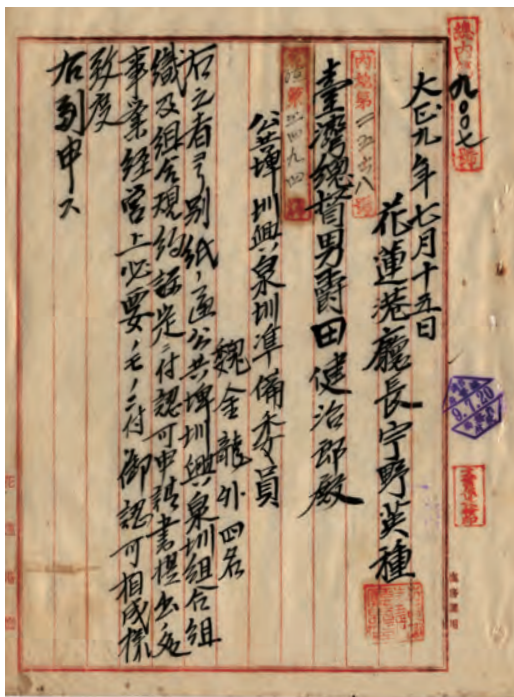 總內第九〇〇七號
大正九年七月十五日
花蓮港廳長宇野英種
內地第二五六八號
臺灣總督男爵田健治郎殿
第三四九四
公共埤圳興泉圳準備委員
魏金龍外四名
右之者ヨリ別紙ノ通公共埤圳興泉圳組合組
織及組合規約認定ニ付認可申請書提出候處
事業經營上必要ノモノニ付御認可相成樣
致度
右副申ス
9.7.20